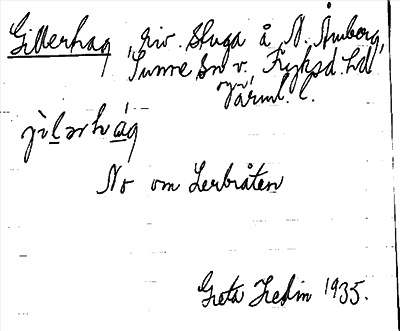 Gillerhag, riv. stuga å N. Åmberg,
Sunne sn v. Fryksd. hd
Värml. l.
No om Lerbråten
Greta Hedin 1935.